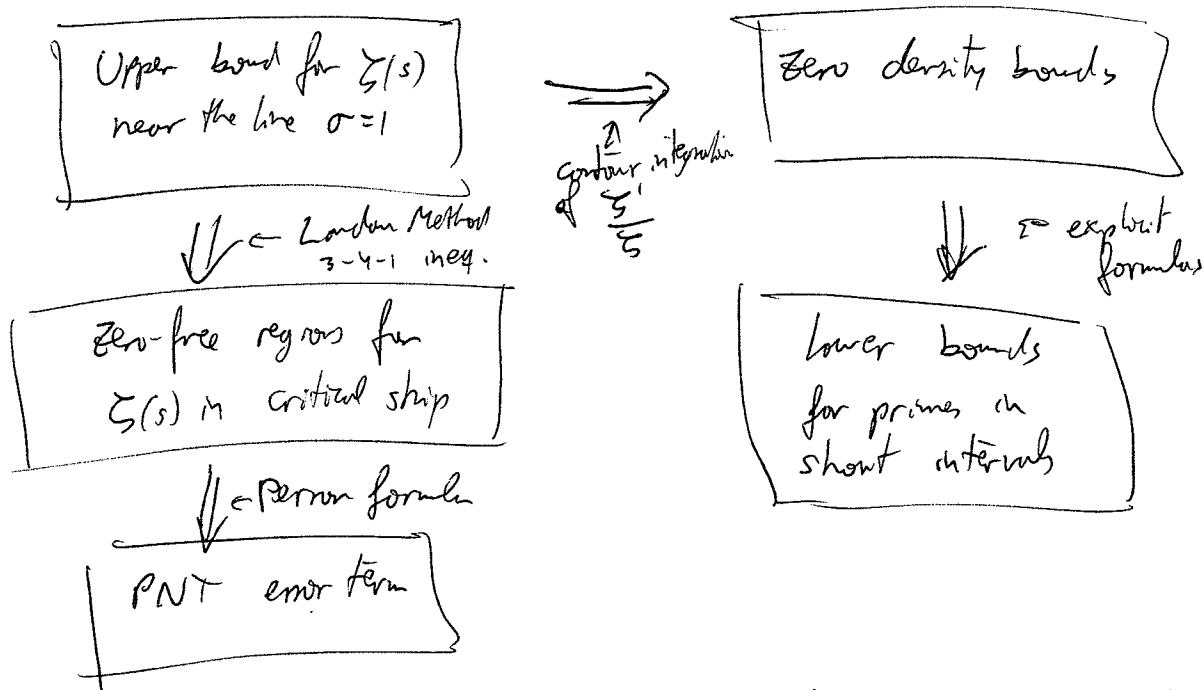 Upper bound for ζ(s)
near the line σ=1
⇒
↑
contour integration
of ζ'/ζ
Zero density bounds
⇓ ← Landau Method
3-4-1 ineq.
⇓ ← explicit
formulas
Zero-free regions for
ζ(s) in critical strip
Lower bounds
for primes in
short intervals
⇓ ← Perron formula
PNT error term